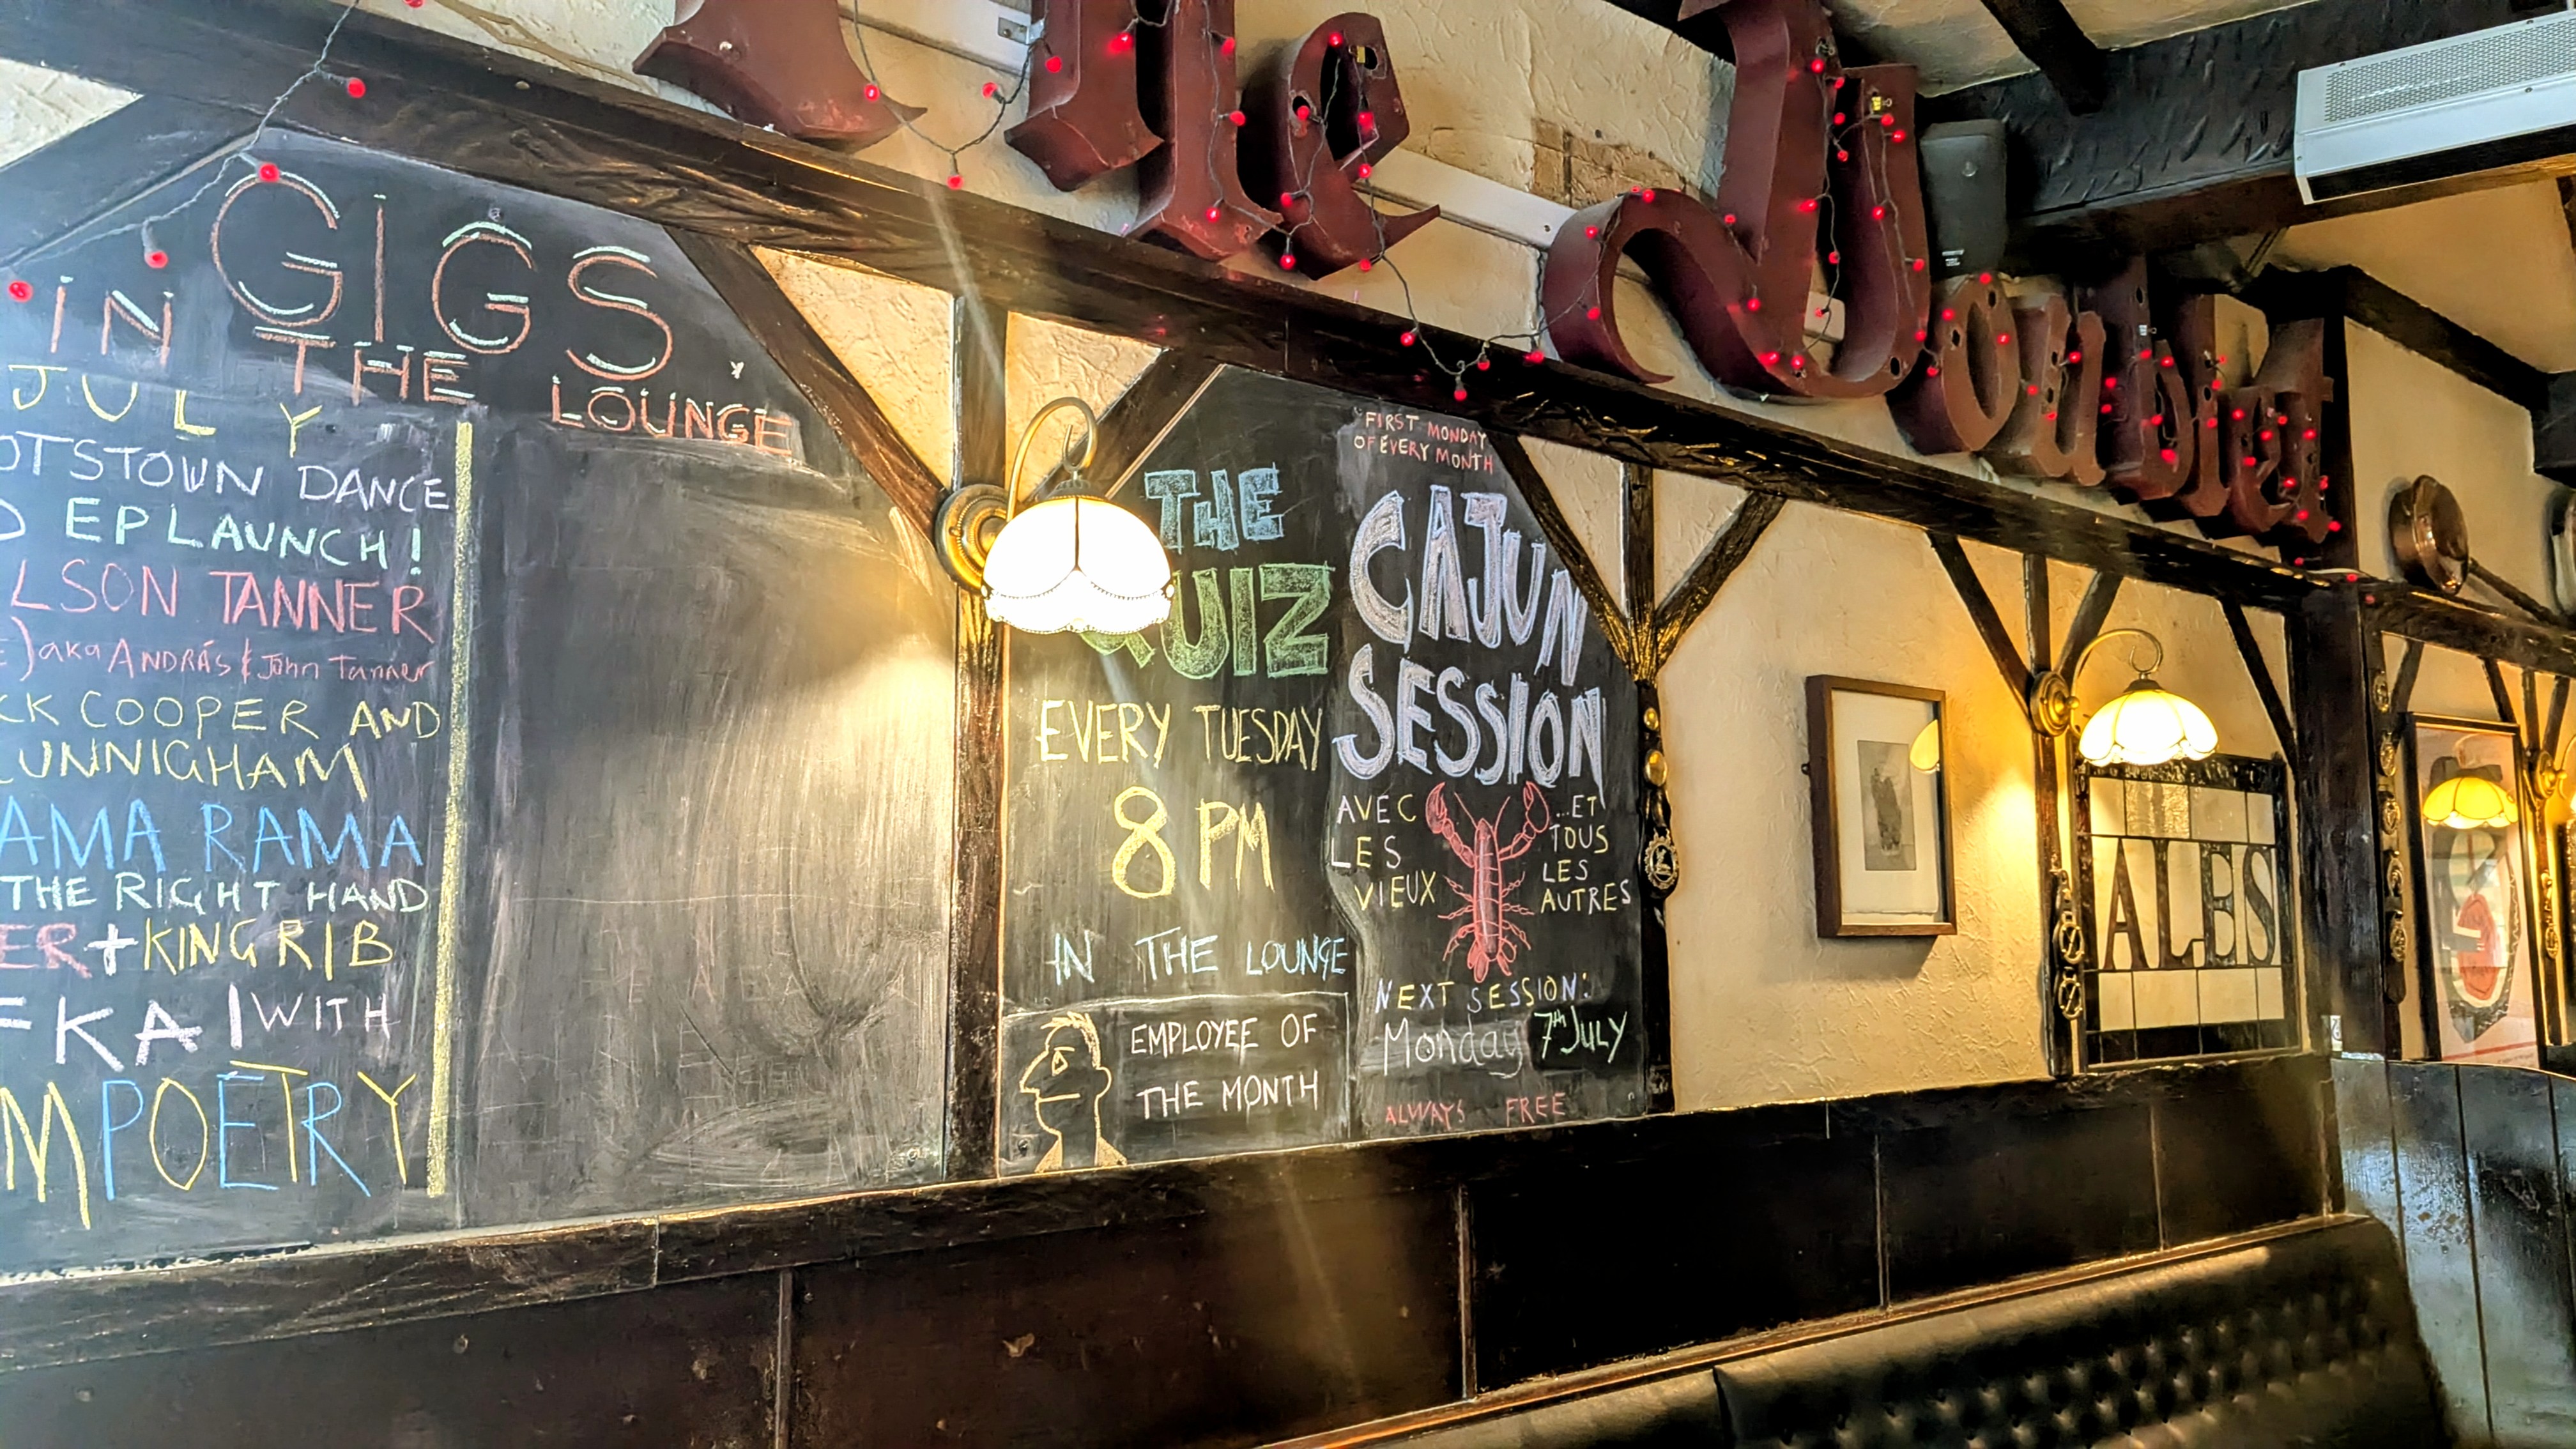 The Doublet
GIGS
IN THE LOUNGE
JULY
OTSTOWN DANCE
EP LAUNCH!
LSON TANNER
E) aka ANDRÁS & John Tanner
CK COOPER AND
CUNNIGHAM
AMA RAMA
THE RIGHT HAND
ER + KING RIB
FKA | WITH
M POETRY
THE
QUIZ
EVERY TUESDAY
8 PM
IN THE LOUNGE
EMPLOYEE OF
THE MONTH
FIRST MONDAY
OF EVERY MONTH
CAJUN
SESSION
AVEC
LES
VIEUX
...ET
TOUS
LES
AUTRES
NEXT SESSION:
Monday 7th JULY
ALWAYS FREE
ALES